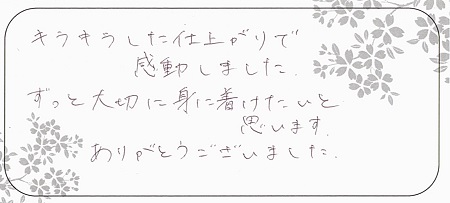 キラキラした仕上がりで
感動しました.
ずっと大切に身に着けたいと
思います.
ありがとうございました.